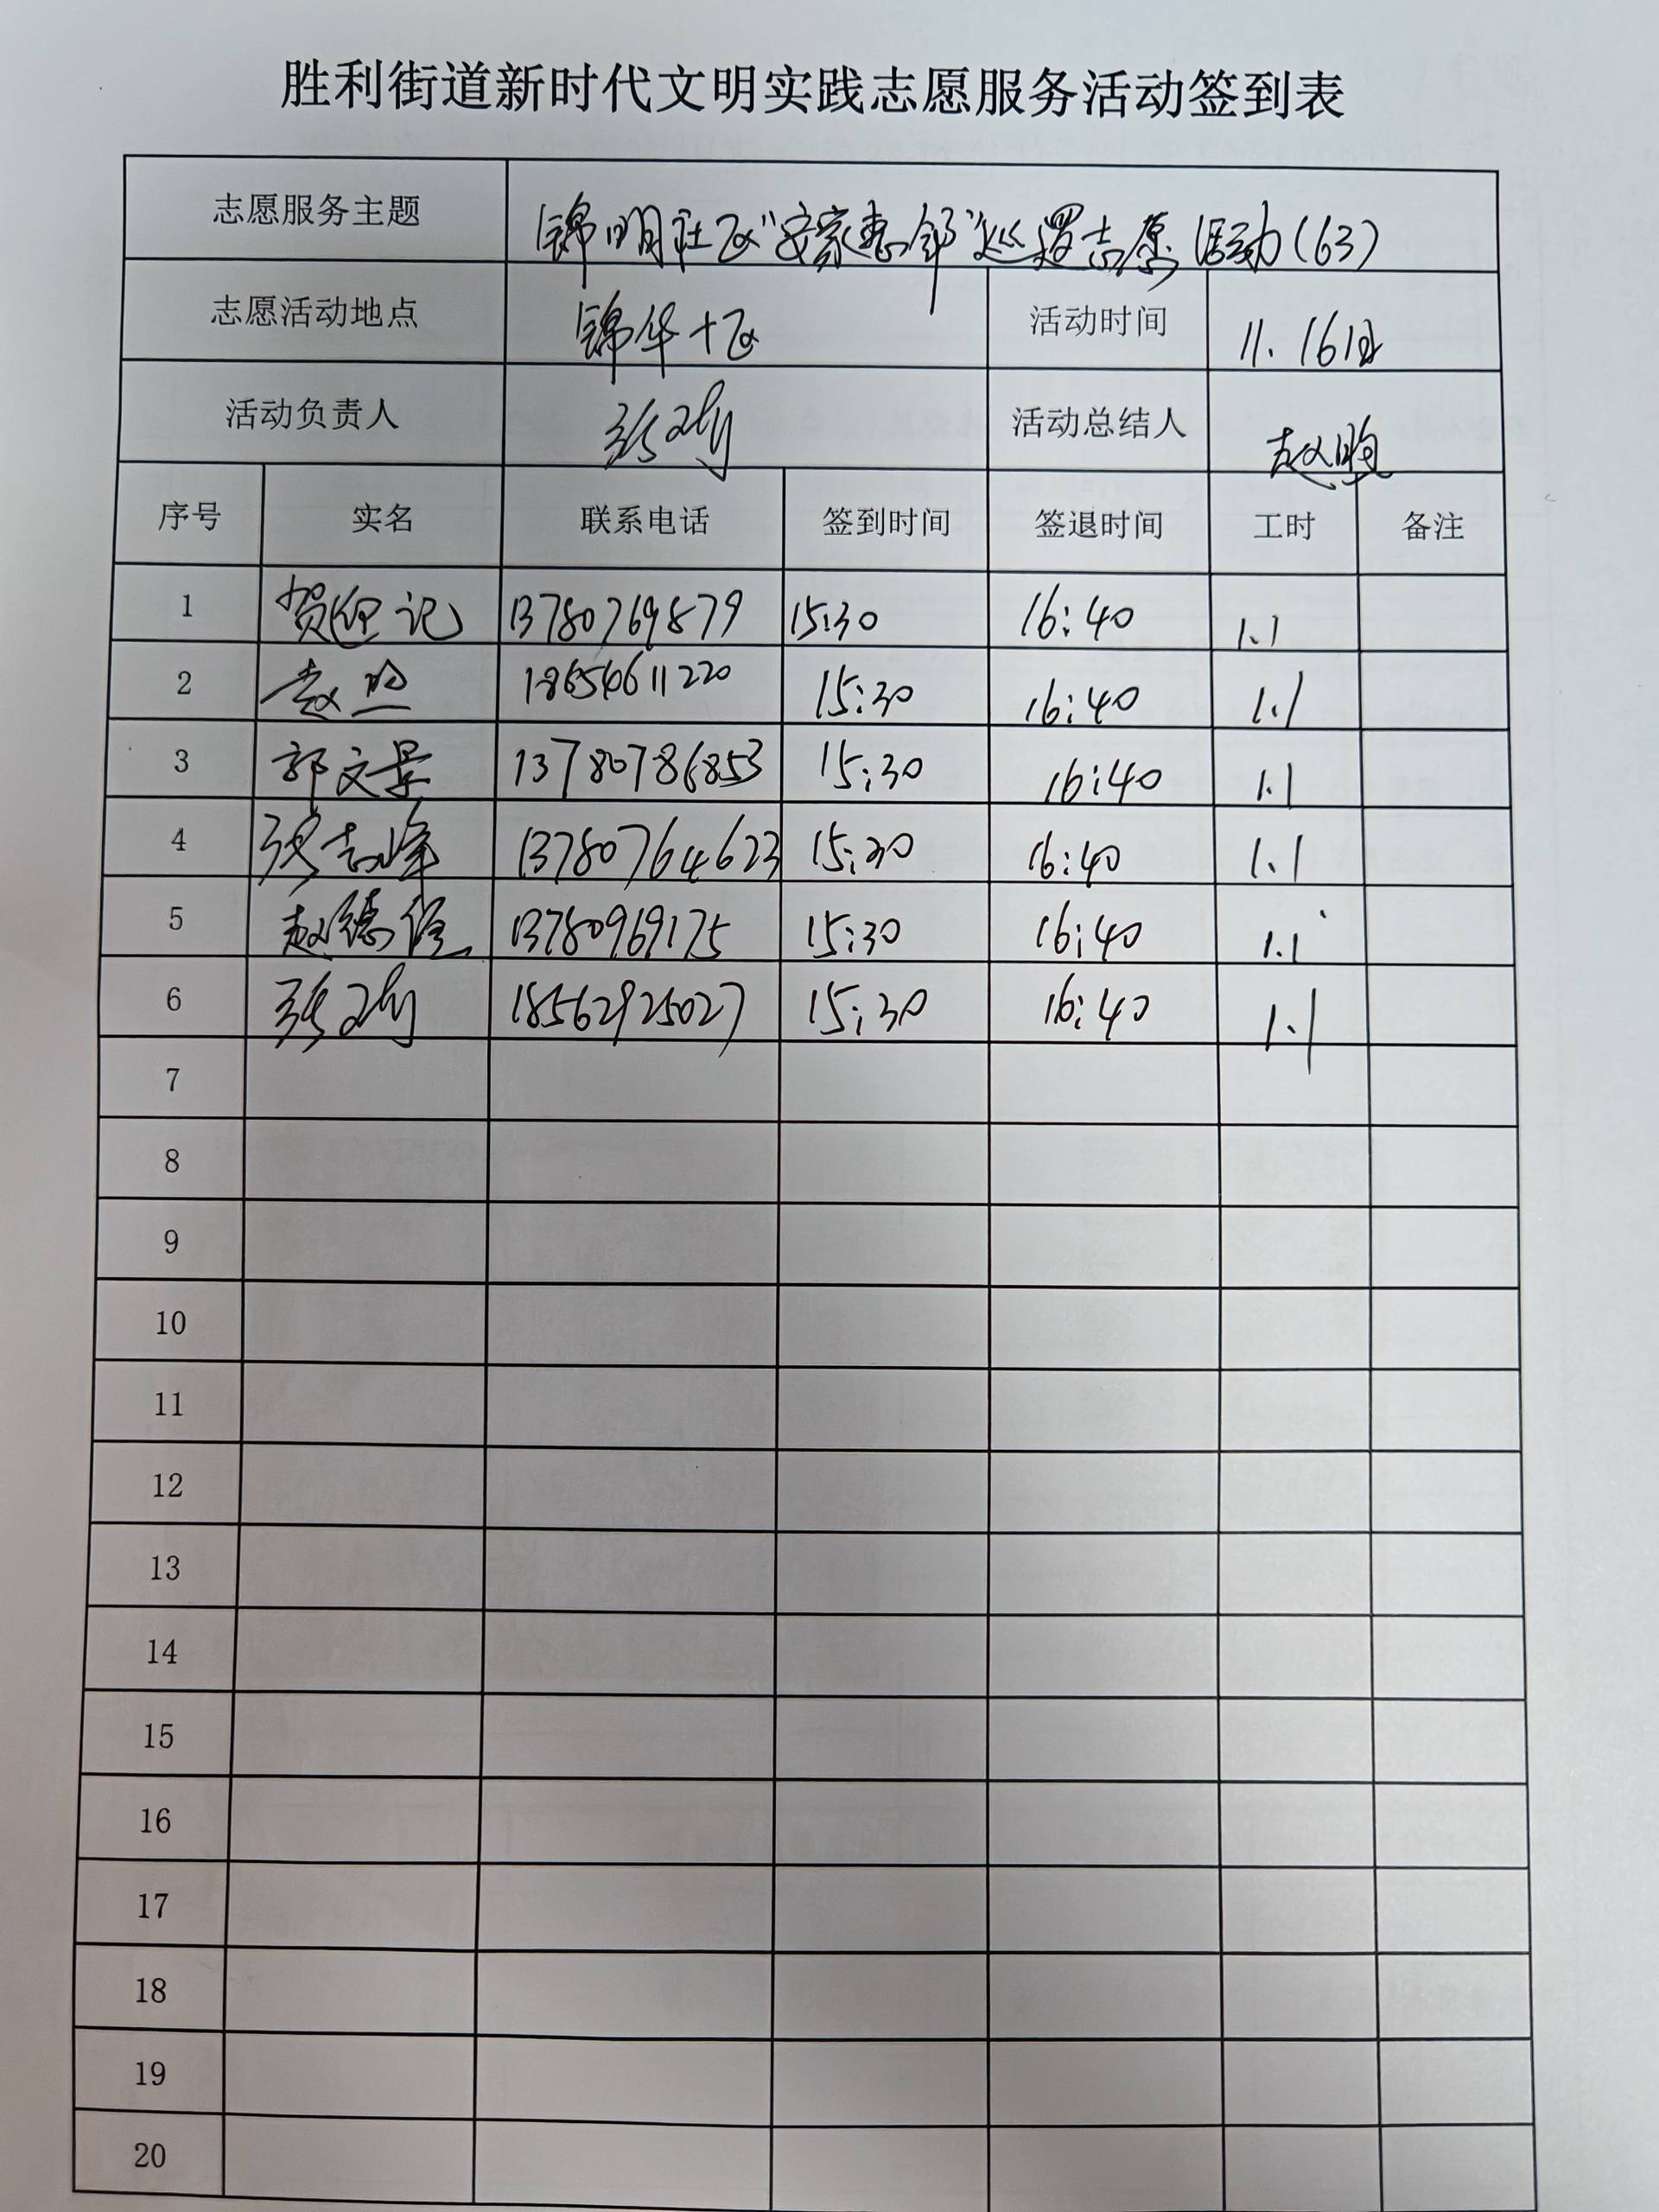 胜利街道新时代文明实践志愿服务活动签到表
志愿服务主题 锦明社区“安家惠邻”巡逻志愿活动(63)
志愿活动地点 锦华十区 活动时间 11.16日
活动负责人 张 活动总结人 赵
序号 实名 联系电话 签到时间 签退时间 工时 备注
1 贺 记 13780769879 15:30 16:40 1.1
2 赵 18654611220 15:30 16:40 1.1
3 郭文景 13780786853 15:30 16:40 1.1
4 张志峰 13780764623 15:30 16:40 1.1
5 赵德 13780969175 15:30 16:40 1.1
6 张 18562925027 15:30 16:40 1.1
7
8
9
10
11
12
13
14
15
16
17
18
19
20